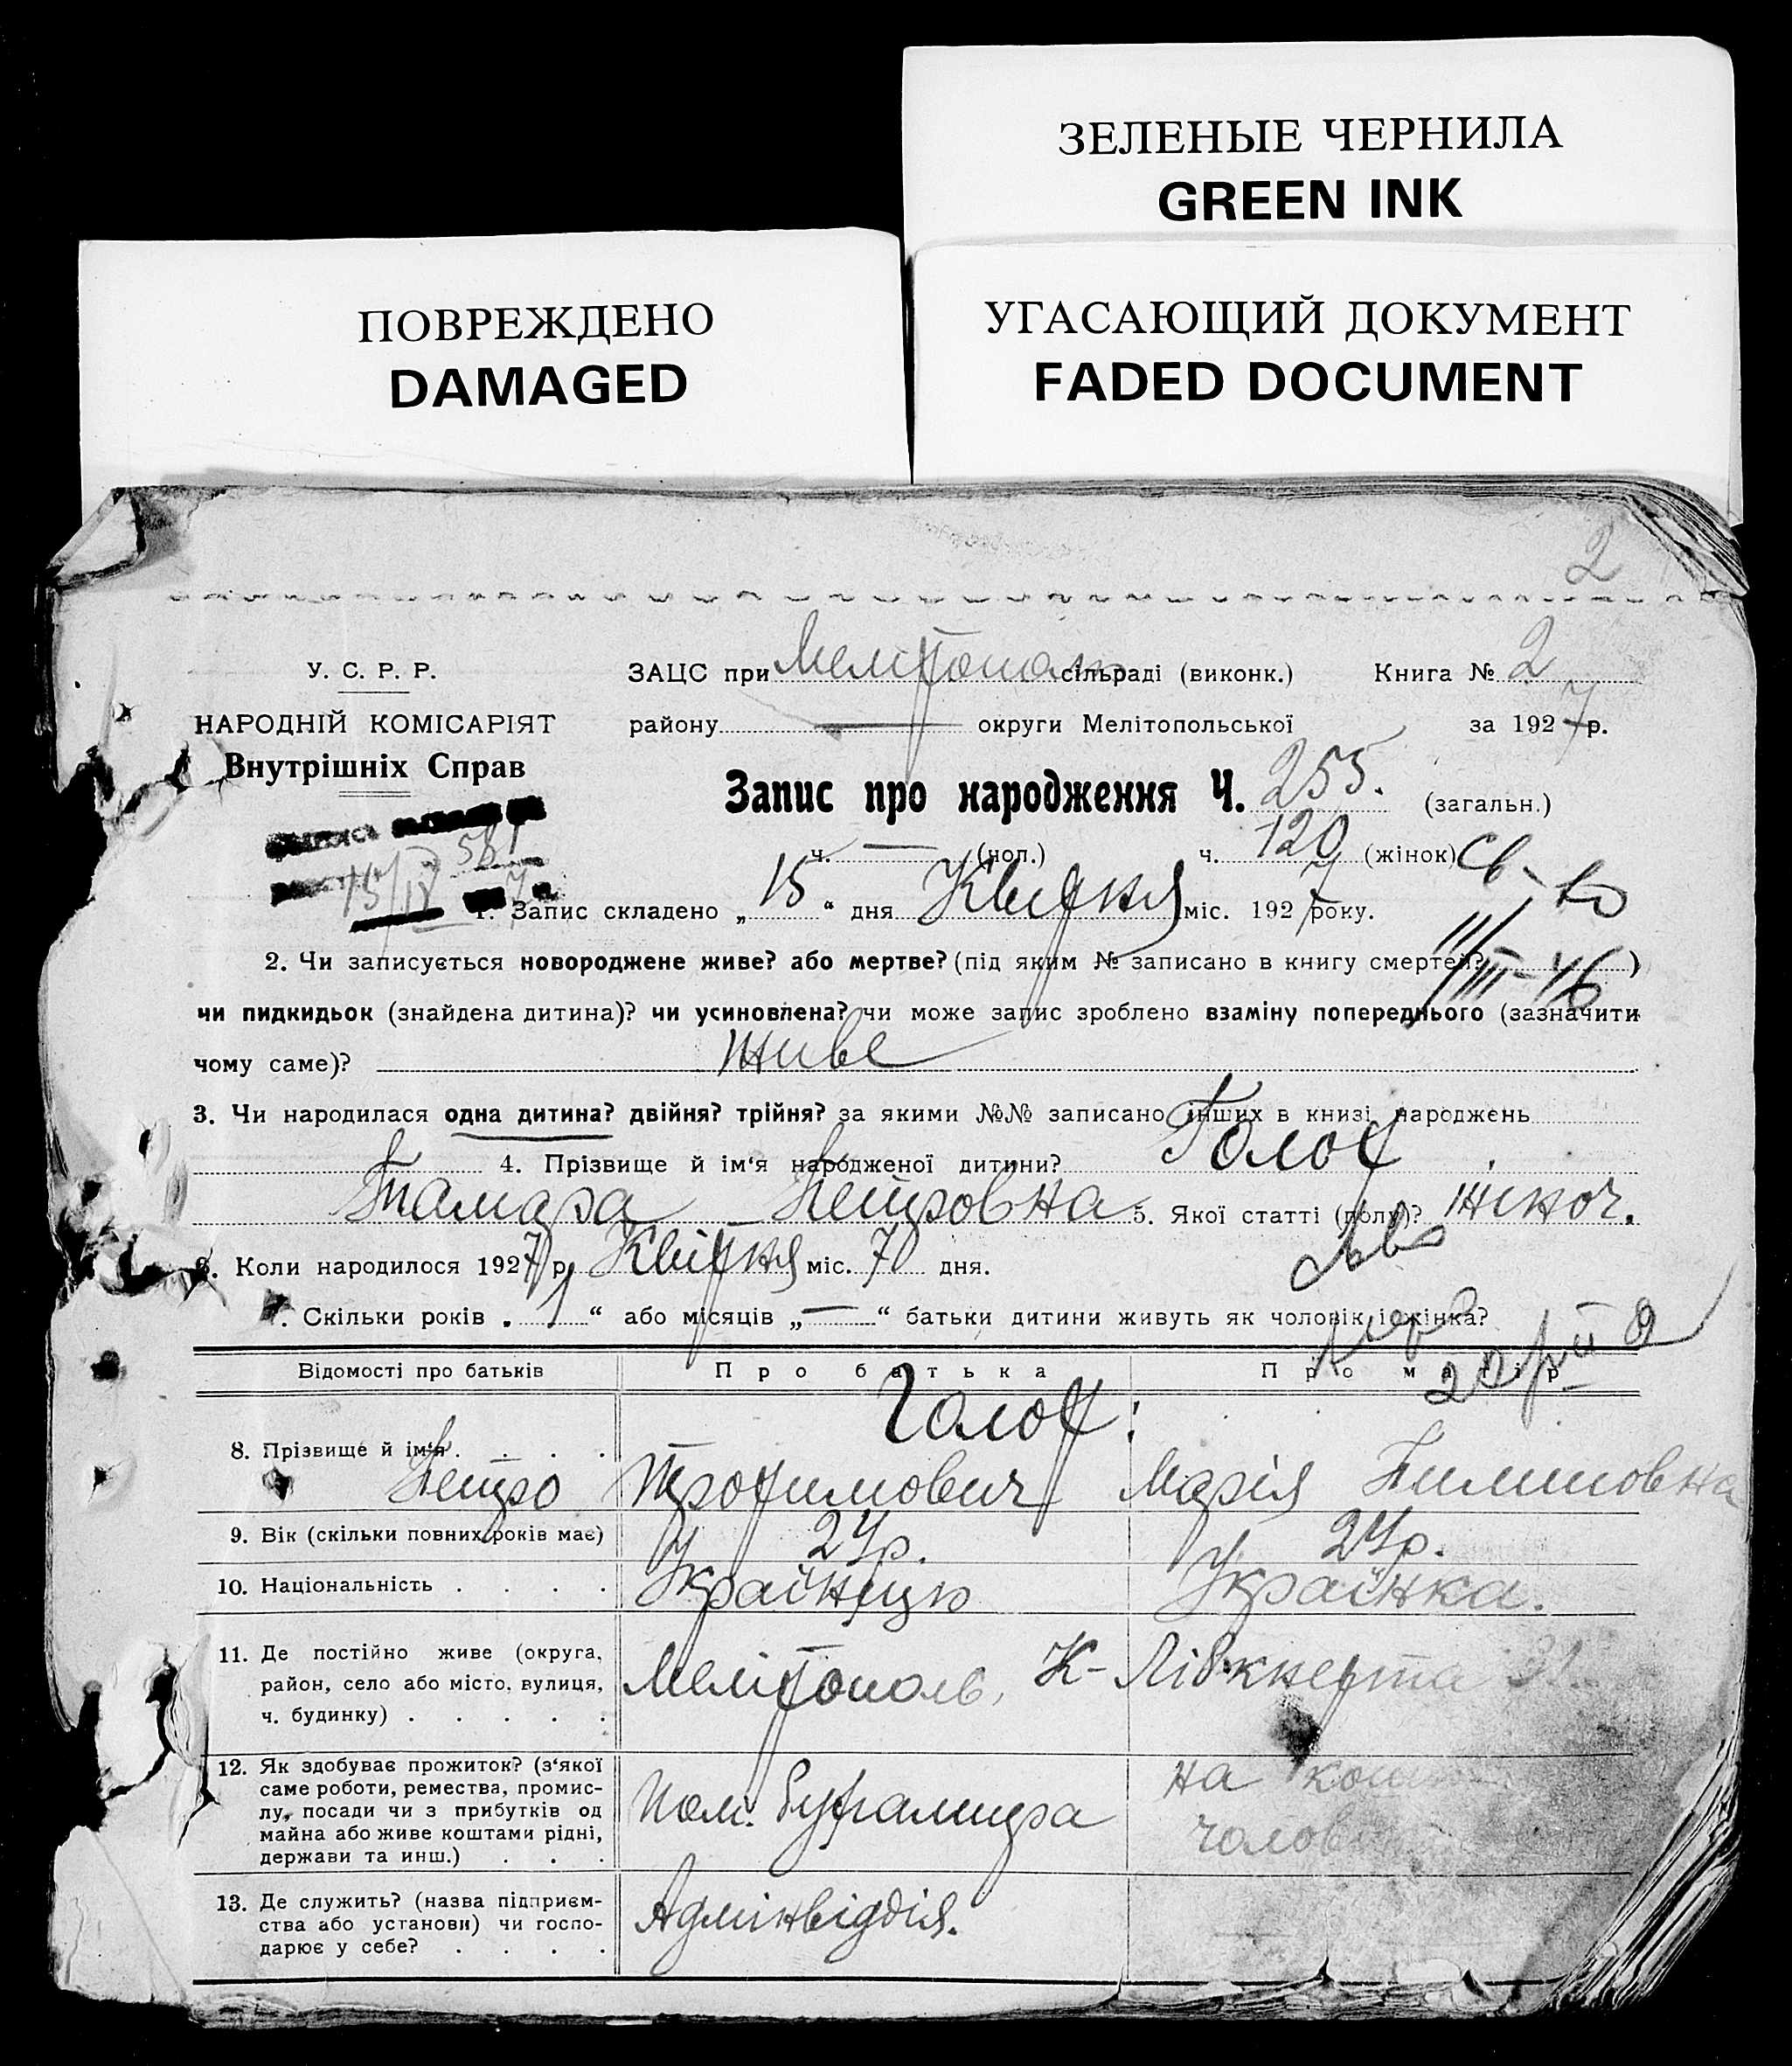 ЗЕЛЕНЫЕ ЧЕРНИЛА
GREEN INK
ПОВРЕЖДЕНО
DAMAGED
УГАСАЮЩИЙ ДОКУМЕНТ
FADED DOCUMENT
2
У. С. Р. Р.
ЗАЦС при сільраді (виконк.) Книга № 2
НАРОДНІЙ КОМІСАРІЯТ
району — округи Мелітопольської за 1927 р.
Внутрішніх Справ
Запис про народження Ч. 255. (загальн.)
ч. — (чол.) ч. 120 (жінок)
1. Запис складено „ 15 “ дня Квітня міс. 1927 року.
2. Чи записується новороджене живе? або мертве? (під яким № записано в книгу смертей? )
чи пидкидьок (знайдена дитина)? чи усиновлена? чи може запис зроблено взаміну попереднього (зазначити
чому саме)? живе
3. Чи народилася одна дитина? двійня? трійня? за якими №№ записано інших в книзі народжень
4. Прізвище й ім‘я народженої дитини? Голот
Тамара Петровна 5. Якої статті (полу)? жіноч.
6. Коли народилося 1927 р. Квітня міс. дня.
7. Скільки років „ 1 “ або місяців „ — “ батьки дитини живуть як чоловік і жінка?
Відомості про батьків Про батька Про матір
Голот:
8. Прізвище й ім‘я . . . .
Петро Трофимович Марія Тимоновна
9. Вік (скільки повних років має) 24 р. 24 р.
10. Національність . . . . Українець Українка.
11. Де постійно живе (округа,
район, село або місто, вулиця,
ч. будинку) . . . . .
Мелітополь, К-Лібкнехта
12. Як здобуває прожиток? (з‘якої
саме роботи, ремества, промис-
лу, посади чи з прибутків од
майна або живе коштами рідні,
держави та инш.) . . .
Пом. Бухгалтера
на кошт
13. Де служить? (назва підприєм-
ства або установи) чи госпо-
дарює у себе? . . . .
Адмінвідділ.